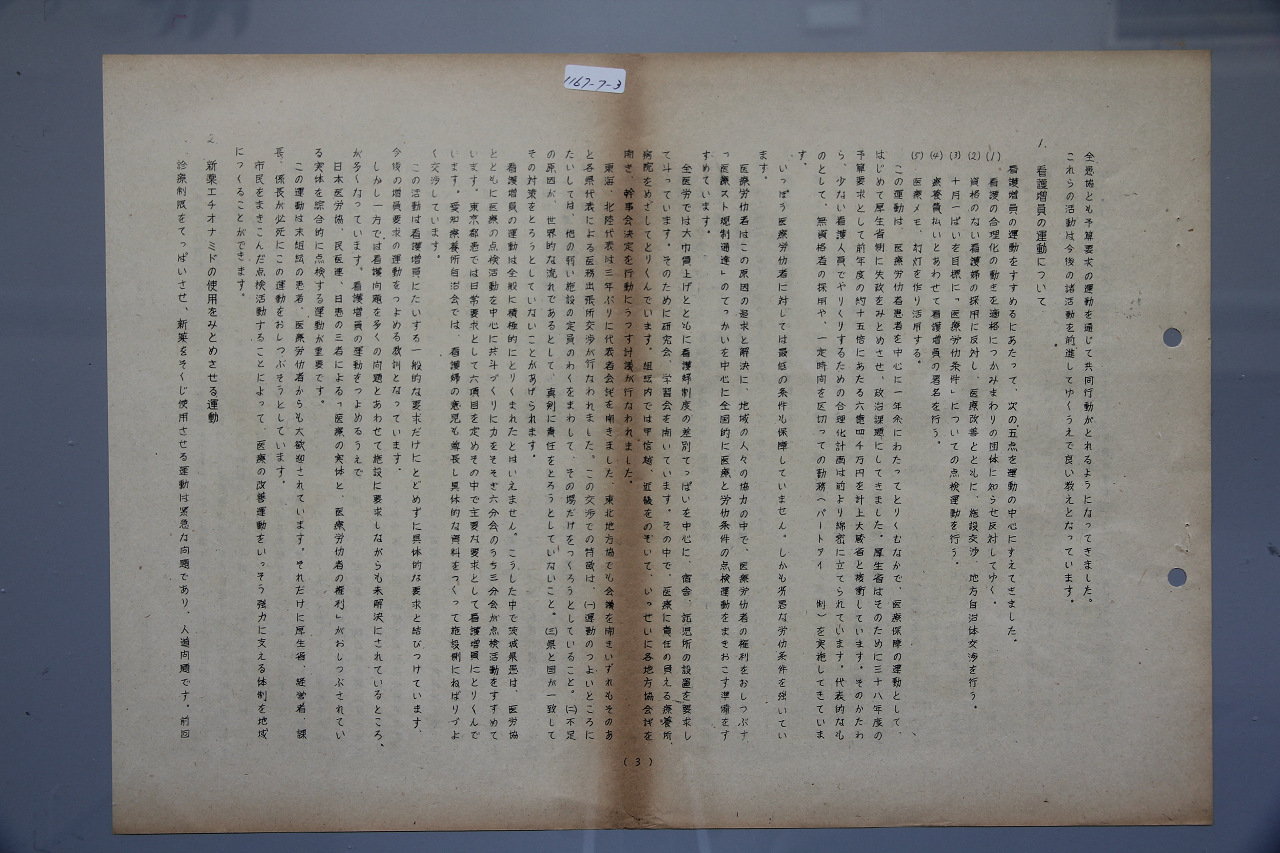 1167-7-3
全患協とも予算要求の運動を通じて共同行動がとれるようになってきました。
これらの活動は今後の諸活動を前進してゆくうえで良い教えとなっています。
1. 看護増員の運動について
看護増員の運動をすすめるにあたって、次の五点を運動の中心にすえてきました。
(1) 看護の合理化の動きを適格につかみまわりの団体に知らせ反対してゆく。
(2) 資格のない看護婦の採用に反対し、医療改善とともに、施設交渉、地方自治体交渉を行う。
(3) 十月一ぱいを目標に「医療労仂条件」についての点検運動を行う。
(4) 療養員払いとあわせて看護増員の署名を行う。
(5) 医療メモ、灯灯を作り活用する。
この運動は、医療労仂者患者を中心に一年余にわたってとりくむなかで、医療保障の運動として、
はじめて厚生省側に失政をみとめさせ、政治課題にしてきました。厚生省はそのために三十八年度の
予算要求として前年度の約十五倍にあたる六億四千万円を計上大蔵省と核衝しています。そのかたわ
ら、少ない看護人員でやりくりするための合理化計画は前より綿密に立てられています。代表的なも
のとして、無資格者の採用や、一定時向を区切っての勤務(パートタイ 制)を実施してきていま
す。
いっぽう医療労仂者に対しては最低の条件も保障していません。しかも劣悪な労仂条件を強いてい
ます。
医療労仂者はこの原因の追求と解決に、地域の人々の協力の中で、医療労仂者の権利をおしつぶす
「医療スト規制通達」のてっかいを中心に全国的に医療と労仂条件の点検運動をまきおこす準備をす
すめています。
全医労では大巾賃上げとともに看護婦制度の差別てっぱいを中心に、宿舎、託児所の設置を要求し
て斗っています。そのために研究会、学習会を開いています。その中で、医療に責任の負える療養所、
病院をめざしてとりくんでいます。組織内では甲信越、近畿をのぞいて、いっせいに各地方協会議を
開き、幹事会決定を行動にうつす討議が行なわれました。
東海、北陸代表では三年ぶりに代表者会議を開きました、東北地方協でも会議を開きいずれもそのあ
と各県代表による医務出張所交渉が行なわれました。この交渉での特徴は、(一)運動のつよいところに
たいしては、他の弱い施設の定員のわくをまわして、その場だけをつくろうとしていること。(二)不足
の原因が、世界的な流れであるとして、真剣に責任をとろうとしていないこと。(三)県と国が一致して
その対策をとろうとしていないことがあげられます。
看護増員の運動は全般に積極的にとりくまれたとはいえません。こうした中で茨城県患は、医労協
とともに医療の点検活動を中心に共斗づくりに力をそそぎ六分会のうち三分会が点検活動をすすめて
います。東京都患では日常要求として六項目を定めその中で主要な要求として看護増員にとりくんで
います。愛知療養所自治会では、看護婦の意見も尊長し具体的な資料をつくって施設側にねばりづよ
く交渉しています。
この活動は看護増員にたいする一般的な要求だけにとどめずに具体的な要求と結びつけています、
今後の増員要求の運動をつよめる教訓となっています。
しかし一方では看護向題を多くの向題とあわせて施設に要求しながらも未解決にされているところ、
が多くなっています。看護増員の運動をつよめるうえで
日本医労協、民医連、日患の三者による「医療の実体と、医療労仂者の権利」がおしつぶされてい
る実体を綜合的に点検する運動が重要です。
この運動は未組織の患者、医療労仂者からも大歓迎されています。それだけに厚生省、経営者、課
長、係長が必死にこの運動をおしつぶそうとしています。
市民をまきこんだ点検活動することによって、医療の改善運動をいっそう強力に支える体制を地域
につくることができます。
2. 新薬エチオナミドの使用をみとめさせる運動
診療制限をてっぱいさせ、新薬をそくじ使用させる運動は緊急な向題であり、人道向題です。前回
(3)